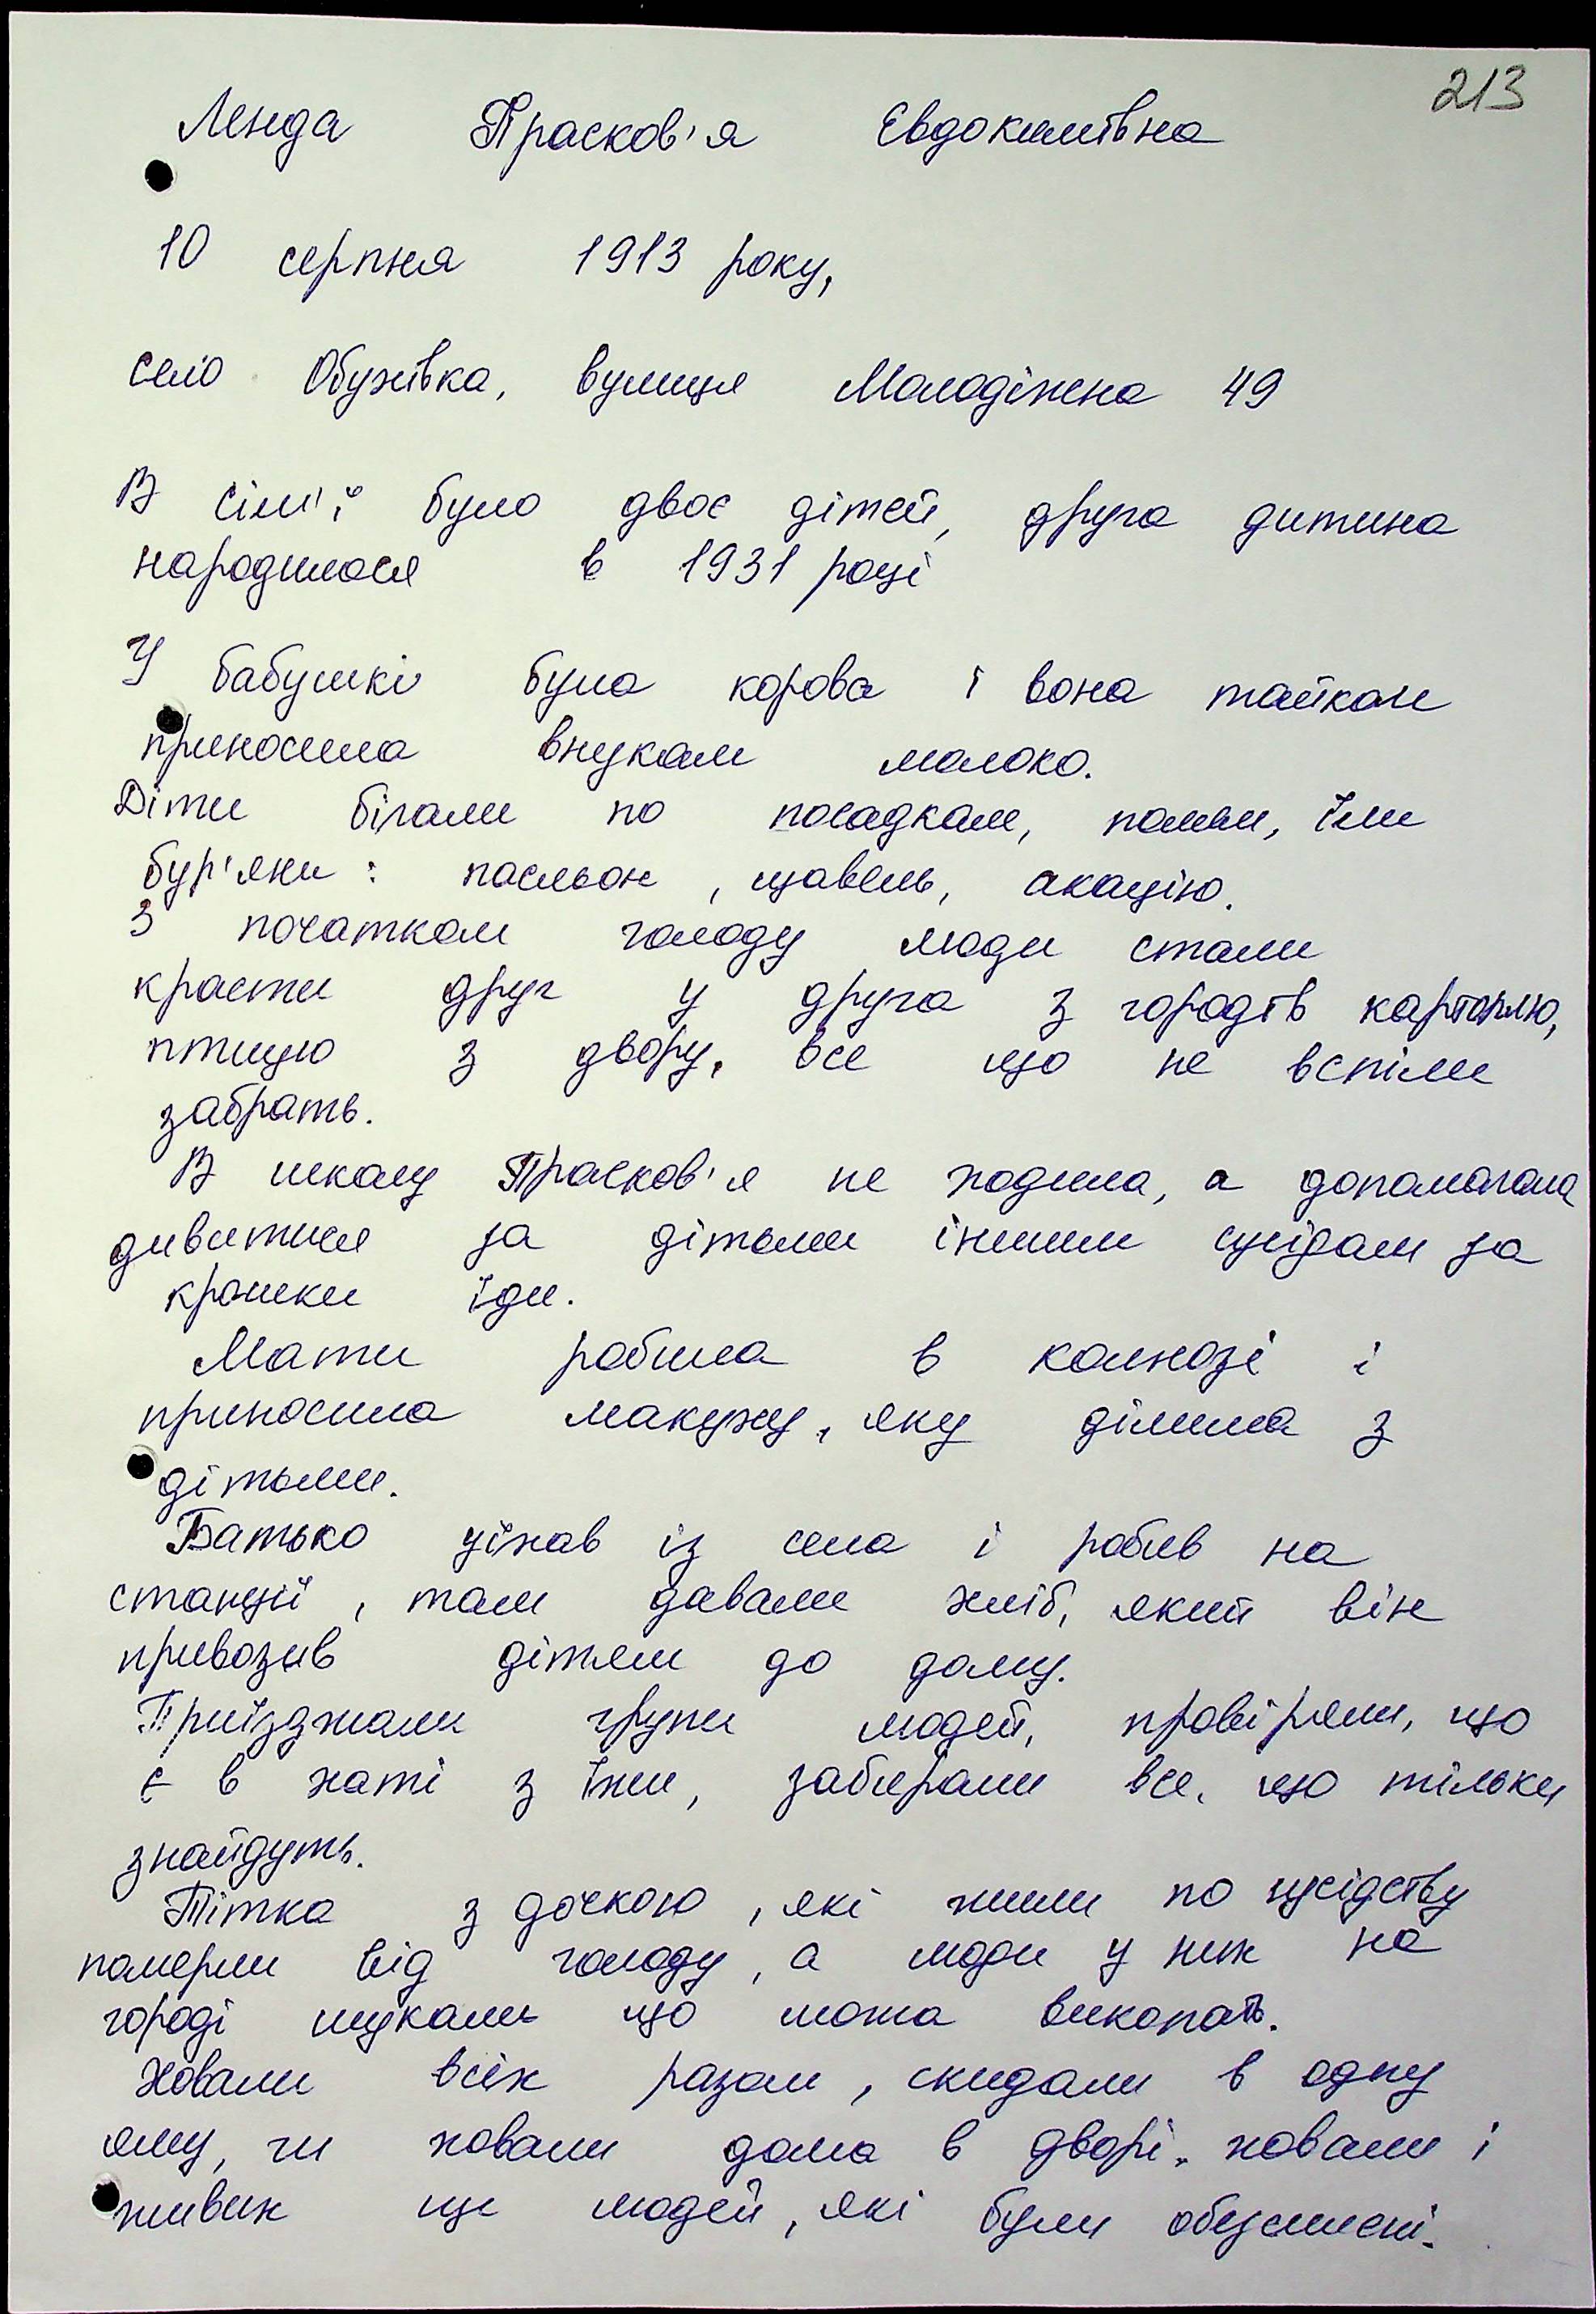 213
Ленда Прасков'я Євдокимівна
10 серпня 1913 року,
село Обухівка, вулиця Молодіжна 49
В сім'ї було двоє дітей, друга дитина
народилася в 1931 році
У бабушкі була корова і вона тайком
приносила внукам молоко.
Діти бігали по посадкам, полям, їли
бур'яни: пасльон, щавель, акацію.
З початком голоду люди стали
красти друг у друга з городів картоплю,
птицю з двору, все що не вспіли
забрать.
В школу Прасков'я не ходила, а допомагала
дивитися за дітьми іншим сусідам за
крошки їди.
Мати робила в колхозі і
приносила макуху, яку ділила з
дітьми.
Батько уїхав із села і робив на
станції, там давали хліб, який він
привозив дітям до дому.
Приїзджали групи людей, провіряли, що
є в хаті з їжи, забирали все, що тільки
знайдуть.
Тітка з дочкою, які жили по сусідству
померли від голоду, а люди у них на
городі шукали що можа викопать.
Ховали всіх разом, скидали в одну
яму, чи ховали дома в дворі, ховали і
живих ще людей, які були обезсилені.